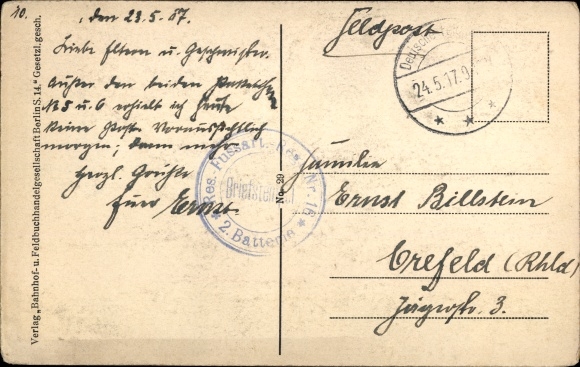 20.
, den 23.5.17.
Liebe Eltern u. Geschwister.
Außer den beiden Paketchen
N 5 u. 6 erhielt ich heute
keine Post. Voraussichtlich
morgen; dann mehr.
Herzl. Grüße
Euer Ernst.
Verlag „Bahnhof- u. Feldbuchhandelgesellschaft Berlin S. 14." Gesetzl. gesch.
No. 29
Res. Fussart.-Res. Nr. 16
Briefstempel
* 2. Batterie *
Feldpost
24.5.17.
Familie
Ernst Billstein
Crefeld (Rhld)
Jägerstr. 3.